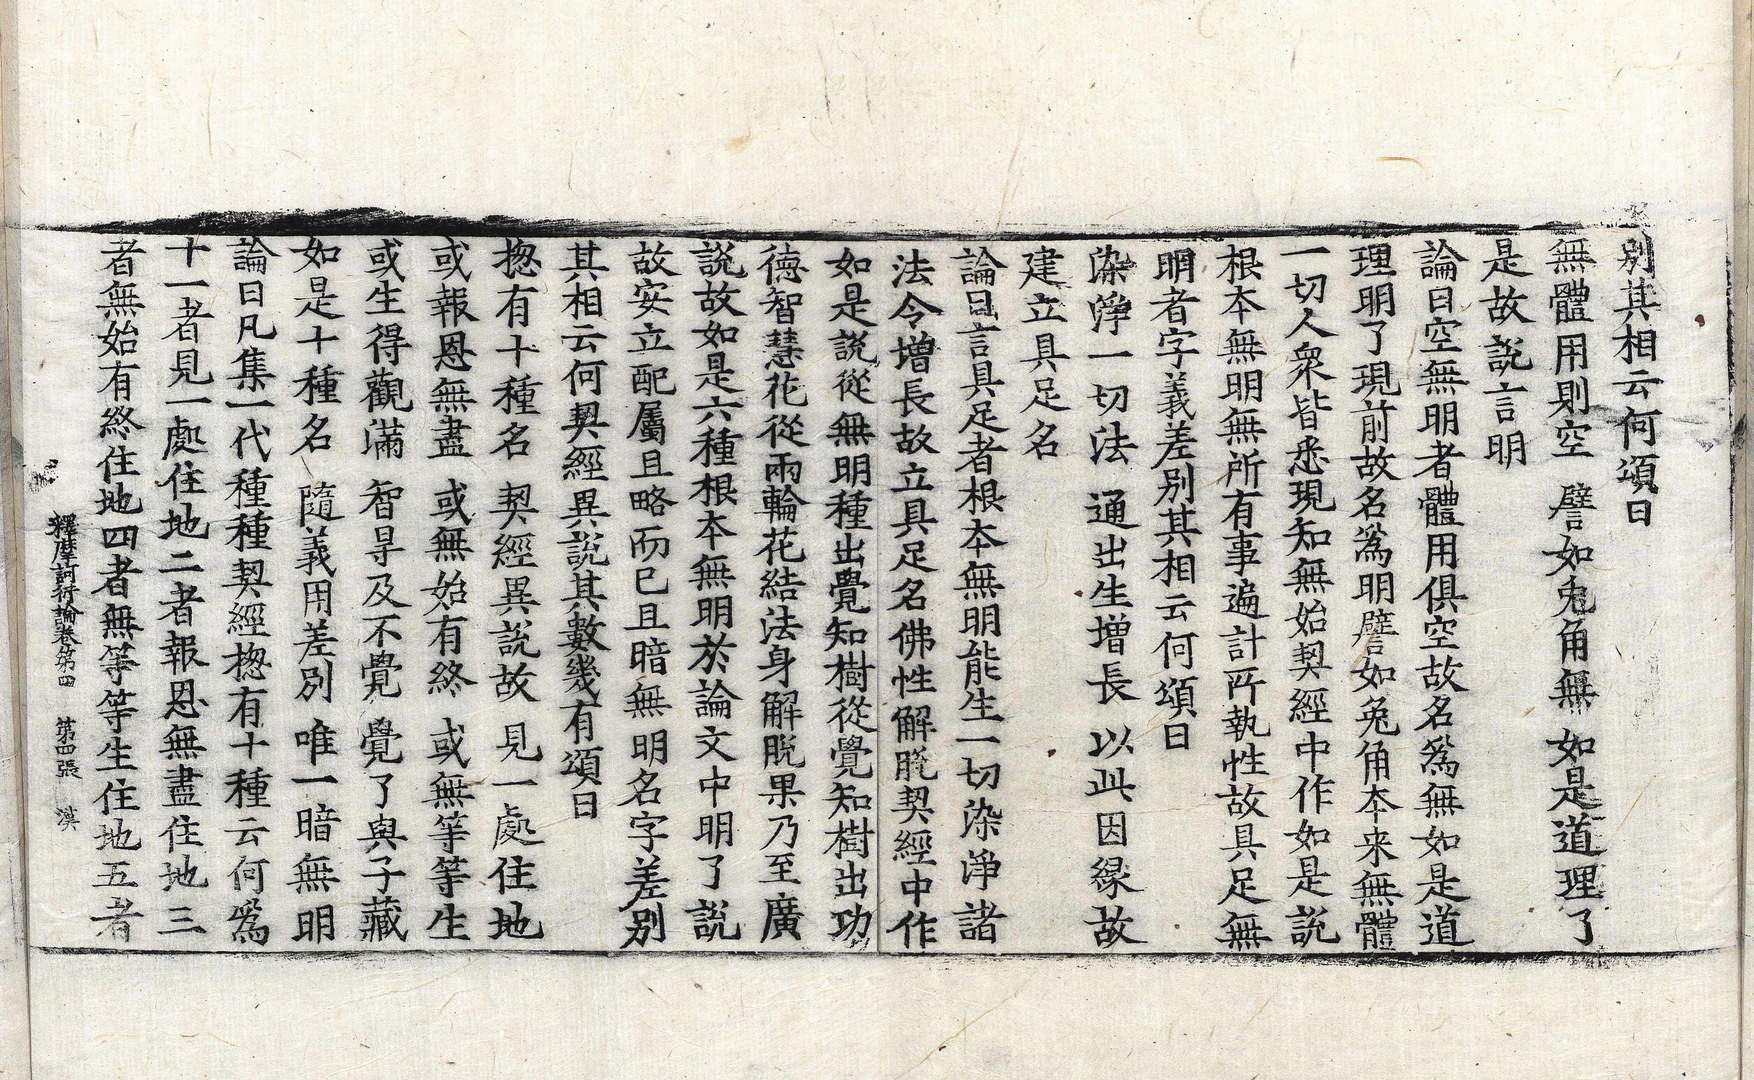 別其相云何頌曰
無體用則空 譬如兎角無 如是道理了
是故說言明
論曰空無明者體用俱空故名爲無如是道
理明了現前故名爲明譬如兎角本来無體
一切人衆皆悉現知無始契經中作如是說
根本無明無所有事遍計所執性故具足無
明者字義差別其相云何頌曰
染淨一切法 通出生增長 以此因緣故
建立具足名
論曰言具足者根本無明能生一切染淨諸
法令增長故立具足名佛性解脫契經中作
如是說從無明種出覺知樹從覺知樹出功
德智慧花從兩輪花結法身解脫果乃至廣
說故如是六種根本無明於論文中明了說
故安立配屬且略而已且暗無明名字差別
其相云何契經異說其數幾有頌曰
揔有十種名 契經異說故 見一處住地
或報恩無盡 或無始有終 或無等等生
或生得觀滿 智㝵及不覺 覺了與子藏
如是十種名 隨義用差別 唯一暗無明
論曰凡集一代種種契經揔有十種云何爲
十一者見一處住地二者報恩無盡住地三
者無始有終住地四者無等等生住地五者
釋摩訶衍論卷第四 第四張 漢